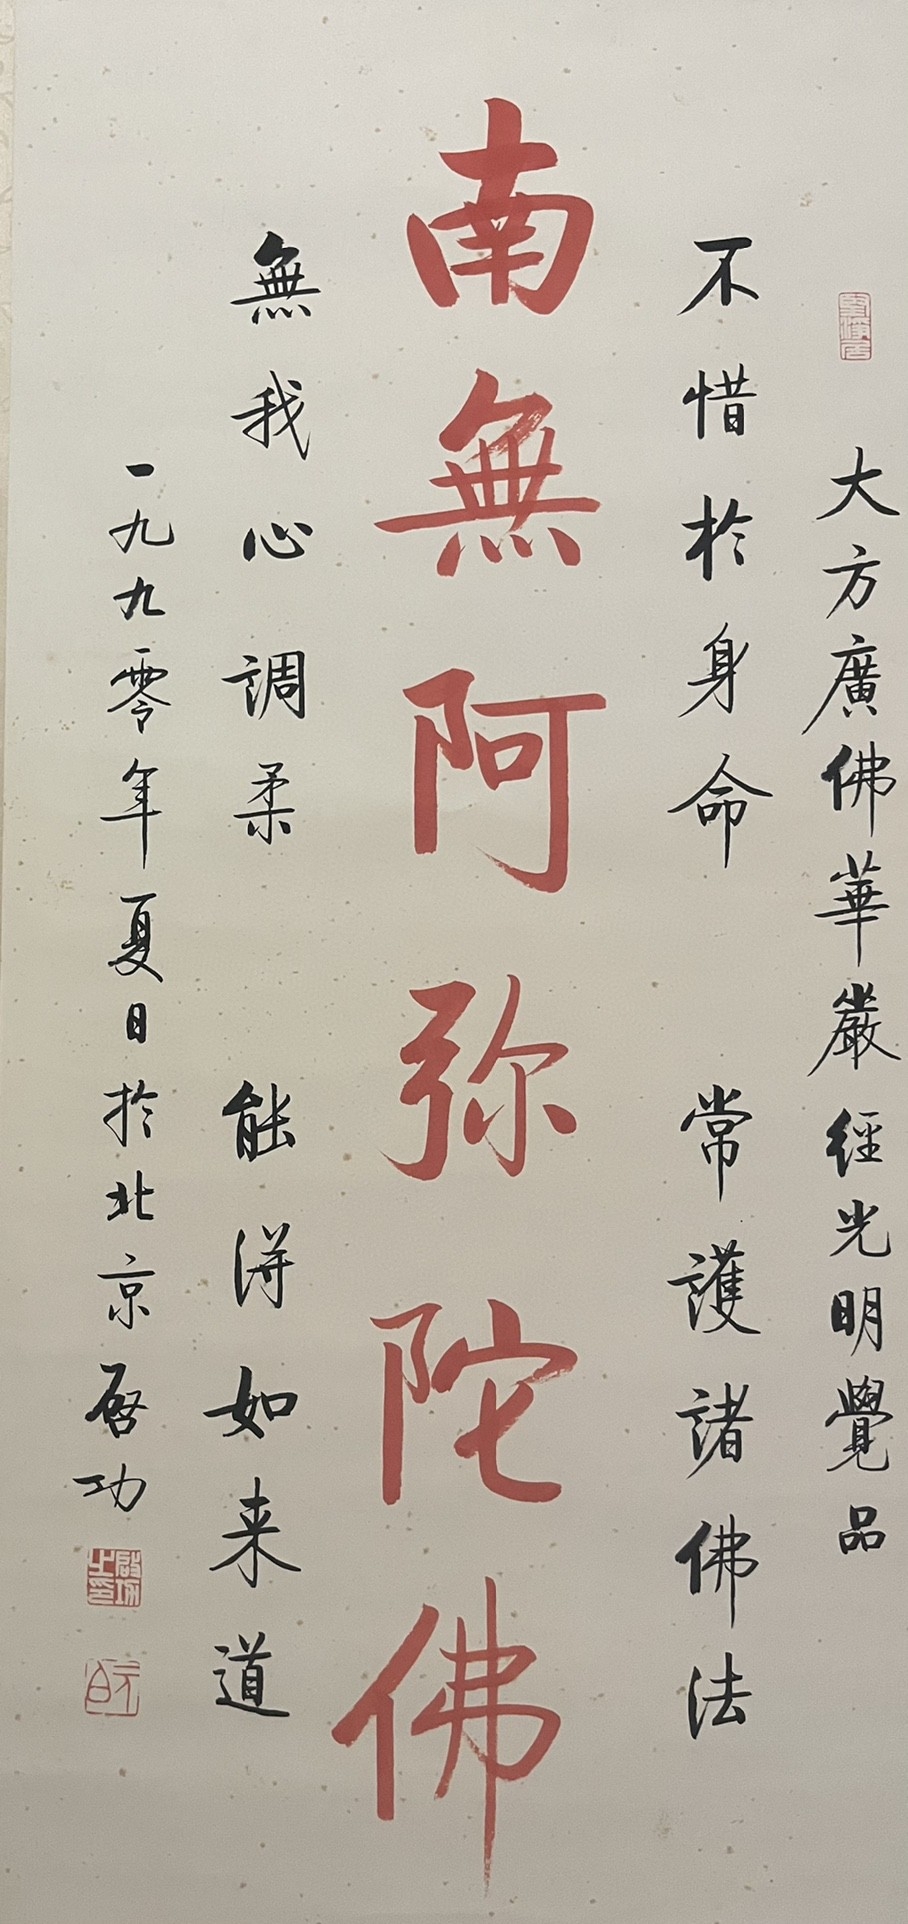 大方廣佛華嚴經光明覺品
不惜於身命 常護諸佛法
南無阿弥陀佛
無我心調柔 能得如来道
一九九零年夏日於北京啓功
啟功之印
元白